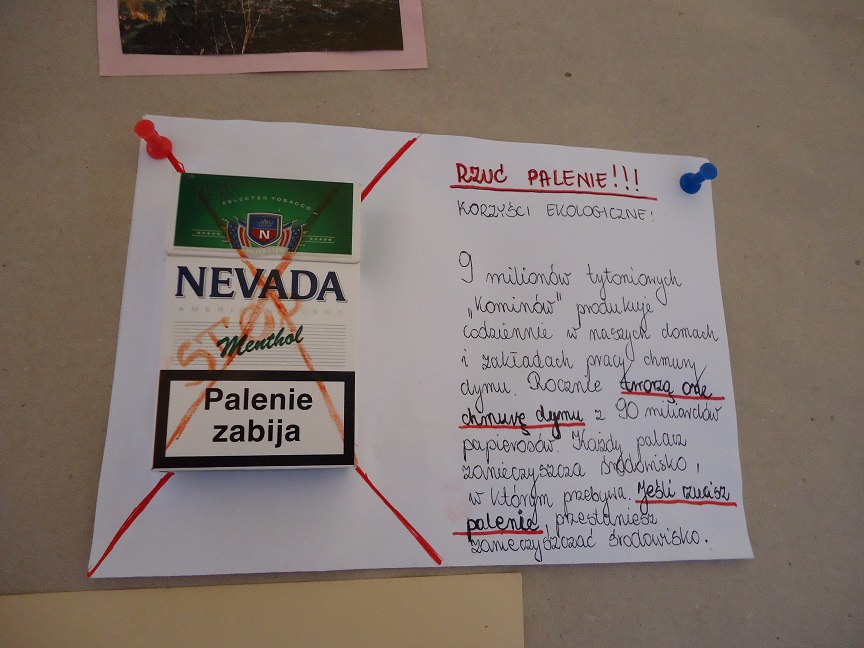 SELECTED TOBACCO
N
NEVADA
AMERICAN BLEND
STOP
Menthol
Palenie
zabija
RZUĆ PALENIE!!!
KORZYŚCI EKOLOGICZNE!
9 milionów tytoniowych
„kominów" produkuje
codziennie w naszych domach
i zakładach pracy chmury
dymu. Rocznie tworzą one
chmurę dymu z 90 miliardów
papierosów. Każdy palacz
zanieczyszcza środowisko,
w którym przebywa. Jeśli rzucisz
palenie, przestaniesz
zanieczyszczać środowisko.